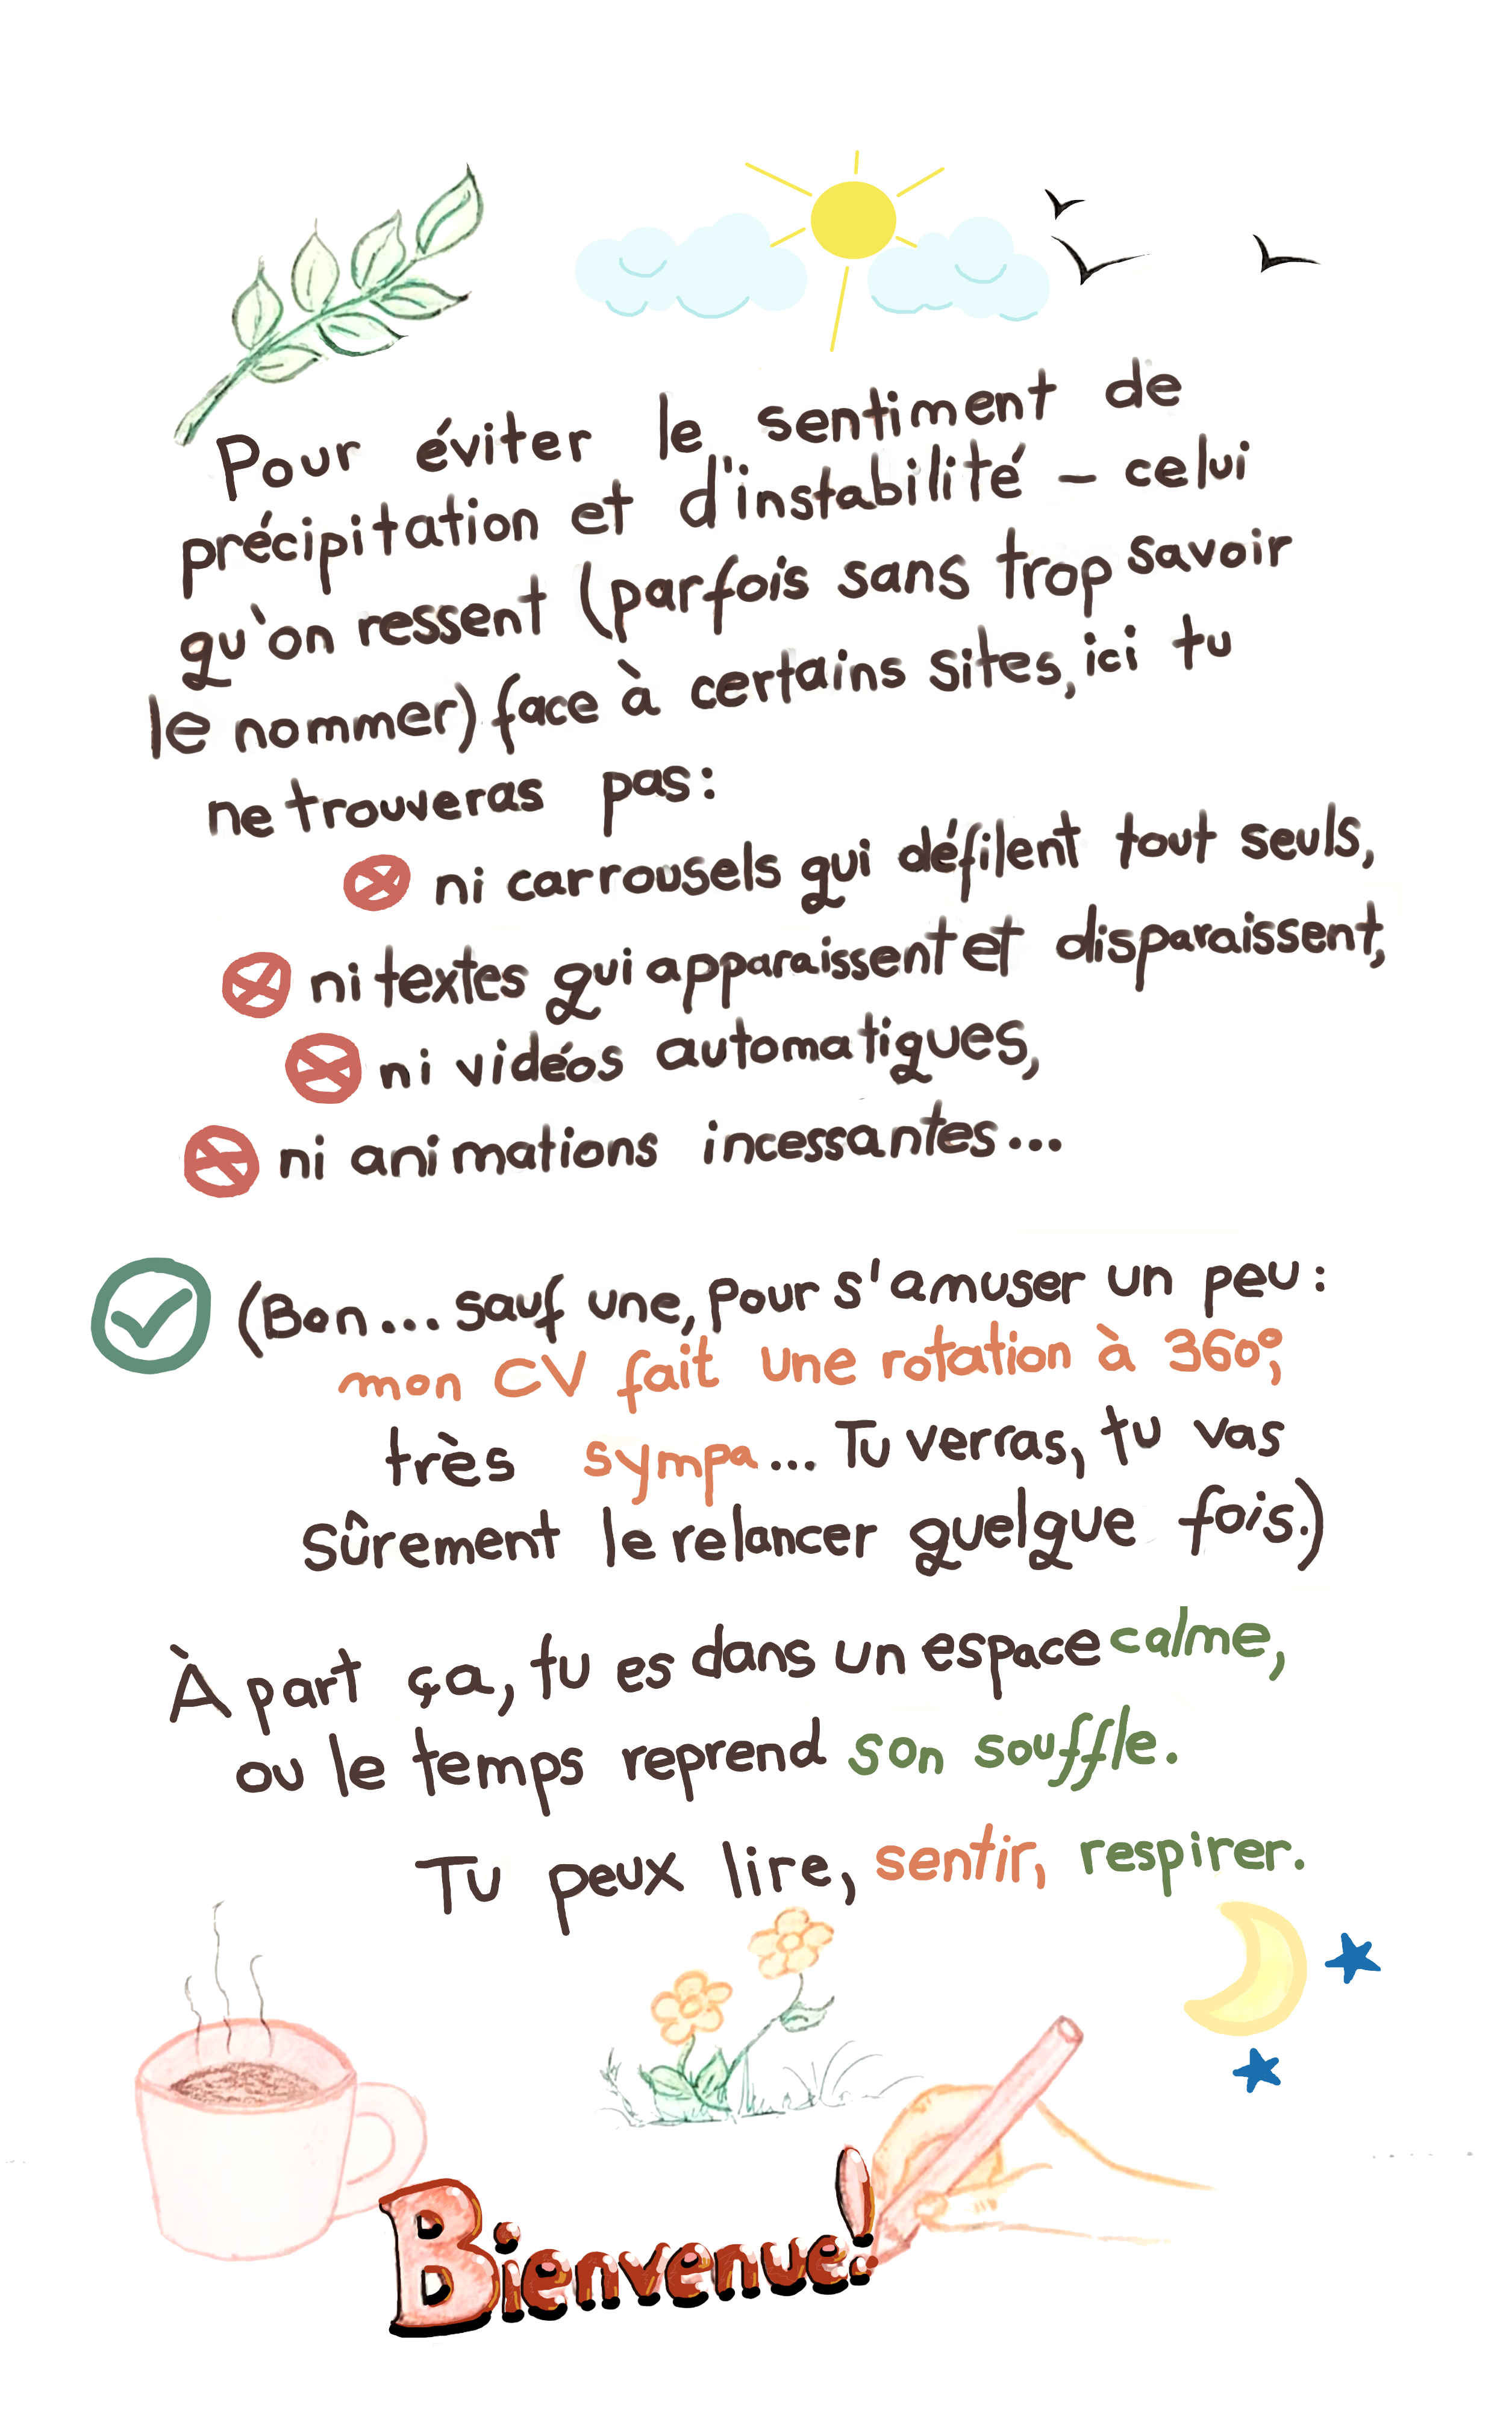 Pour éviter le sentiment de
précipitation et d'instabilité – celui
qu'on ressent (parfois sans trop savoir
le nommer) face à certains sites, ici tu
ne trouveras pas :
ni carrousels qui défilent tout seuls,
ni textes qui apparaissent et disparaissent,
ni vidéos automatiques,
ni animations incessantes...
(Bon... sauf une, pour s'amuser un peu :
mon CV fait une rotation à 360°,
très sympa... Tu verras, tu vas
sûrement le relancer quelque fois.)
À part ça, tu es dans un espace calme,
ou le temps reprend son souffle.
Tu peux lire, sentir, respirer.
Bienvenue!